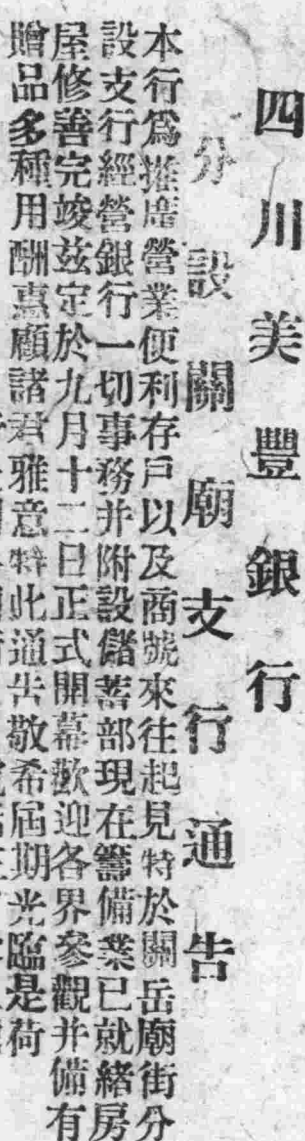 四川美豐銀行
分設關廟支行通告
本行爲推廣營業便利存戶以及商號來往起見特於關岳廟街分
設支行經營銀行一切事務并附設儲蓄部現在籌備業已就緒房
屋修善完竣茲定於九月十二日正式開幕歡迎各界參觀并備有
贈品多種用酬惠顧諸君雅意特此通告敬希屆期光臨是荷